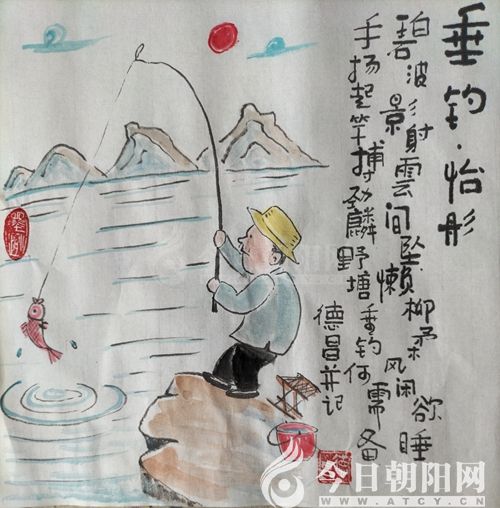 垂钓·怡彤
碧波影射雲间坠懒柳柔风闲欲睡
手扬起竿搏劲麟野塘垂钓何需备
德昌并记
今日朝阳网
WWW.ATCY.CN